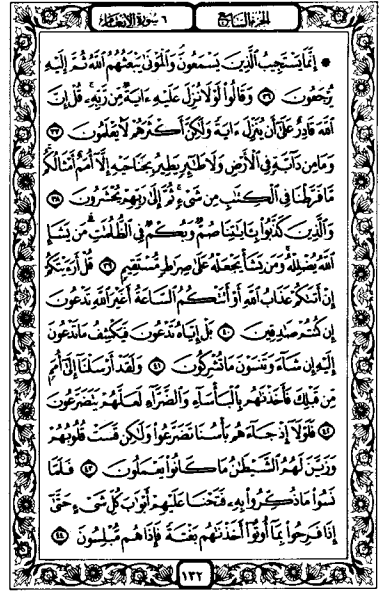 الجزء السابع
٦ سورة الأنعام
* إِنَّمَا يَسْتَجِيبُ الَّذِينَ يَسْمَعُونَ وَالْمَوْتَىٰ يَبْعَثُهُمُ اللَّهُ ثُمَّ إِلَيْهِ
يُرْجَعُونَ ٣٦ وَقَالُوا لَوْلَا نُزِّلَ عَلَيْهِ ءَايَةٌ مِّن رَّبِّهِ قُلْ إِنَّ
اللَّهَ قَادِرٌ عَلَىٰ أَن يُنَزِّلَ ءَايَةً وَلَٰكِنَّ أَكْثَرَهُمْ لَا يَعْلَمُونَ ٣٧
وَمَا مِن دَآبَّةٍ فِي الْأَرْضِ وَلَا طَٰٓئِرٍ يَطِيرُ بِجَنَاحَيْهِ إِلَّآ أُمَمٌ أَمْثَالُكُم
مَّا فَرَّطْنَا فِي الْكِتَٰبِ مِن شَيْءٍ ثُمَّ إِلَىٰ رَبِّهِمْ يُحْشَرُونَ ٣٨
وَالَّذِينَ كَذَّبُوا بِـَٔايَٰتِنَا صُمٌّ وَبُكْمٌ فِي الظُّلُمَٰتِ مَن يَشَإِ
اللَّهُ يُضْلِلْهُ وَمَن يَشَأْ يَجْعَلْهُ عَلَىٰ صِرَٰطٍ مُّسْتَقِيمٍ ٣٩ قُلْ أَرَءَيْتَكُمْ
إِنْ أَتَىٰكُمْ عَذَابُ اللَّهِ أَوْ أَتَتْكُمُ السَّاعَةُ أَغَيْرَ اللَّهِ تَدْعُونَ
إِن كُنتُمْ صَٰدِقِينَ ٤٠ بَلْ إِيَّاهُ تَدْعُونَ فَيَكْشِفُ مَا تَدْعُونَ
إِلَيْهِ إِن شَآءَ وَتَنسَوْنَ مَا تُشْرِكُونَ ٤١ وَلَقَدْ أَرْسَلْنَآ إِلَىٰٓ أُمَمٍ
مِّن قَبْلِكَ فَأَخَذْنَٰهُم بِالْبَأْسَآءِ وَالضَّرَّآءِ لَعَلَّهُمْ يَتَضَرَّعُونَ
٤٢ فَلَوْلَآ إِذْ جَآءَهُم بَأْسُنَا تَضَرَّعُوا وَلَٰكِن قَسَتْ قُلُوبُهُمْ
وَزَيَّنَ لَهُمُ الشَّيْطَٰنُ مَا كَانُوا يَعْمَلُونَ ٤٣ فَلَمَّا
نَسُوا مَا ذُكِّرُوا بِهِ فَتَحْنَا عَلَيْهِمْ أَبْوَٰبَ كُلِّ شَيْءٍ حَتَّىٰٓ
إِذَا فَرِحُوا بِمَآ أُوتُوٓا أَخَذْنَٰهُم بَغْتَةً فَإِذَا هُم مُّبْلِسُونَ ٤٤
١٣٢